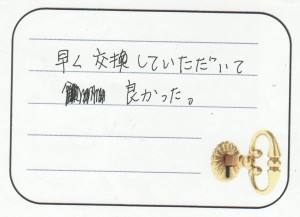 早く交換していただいて
良かった。